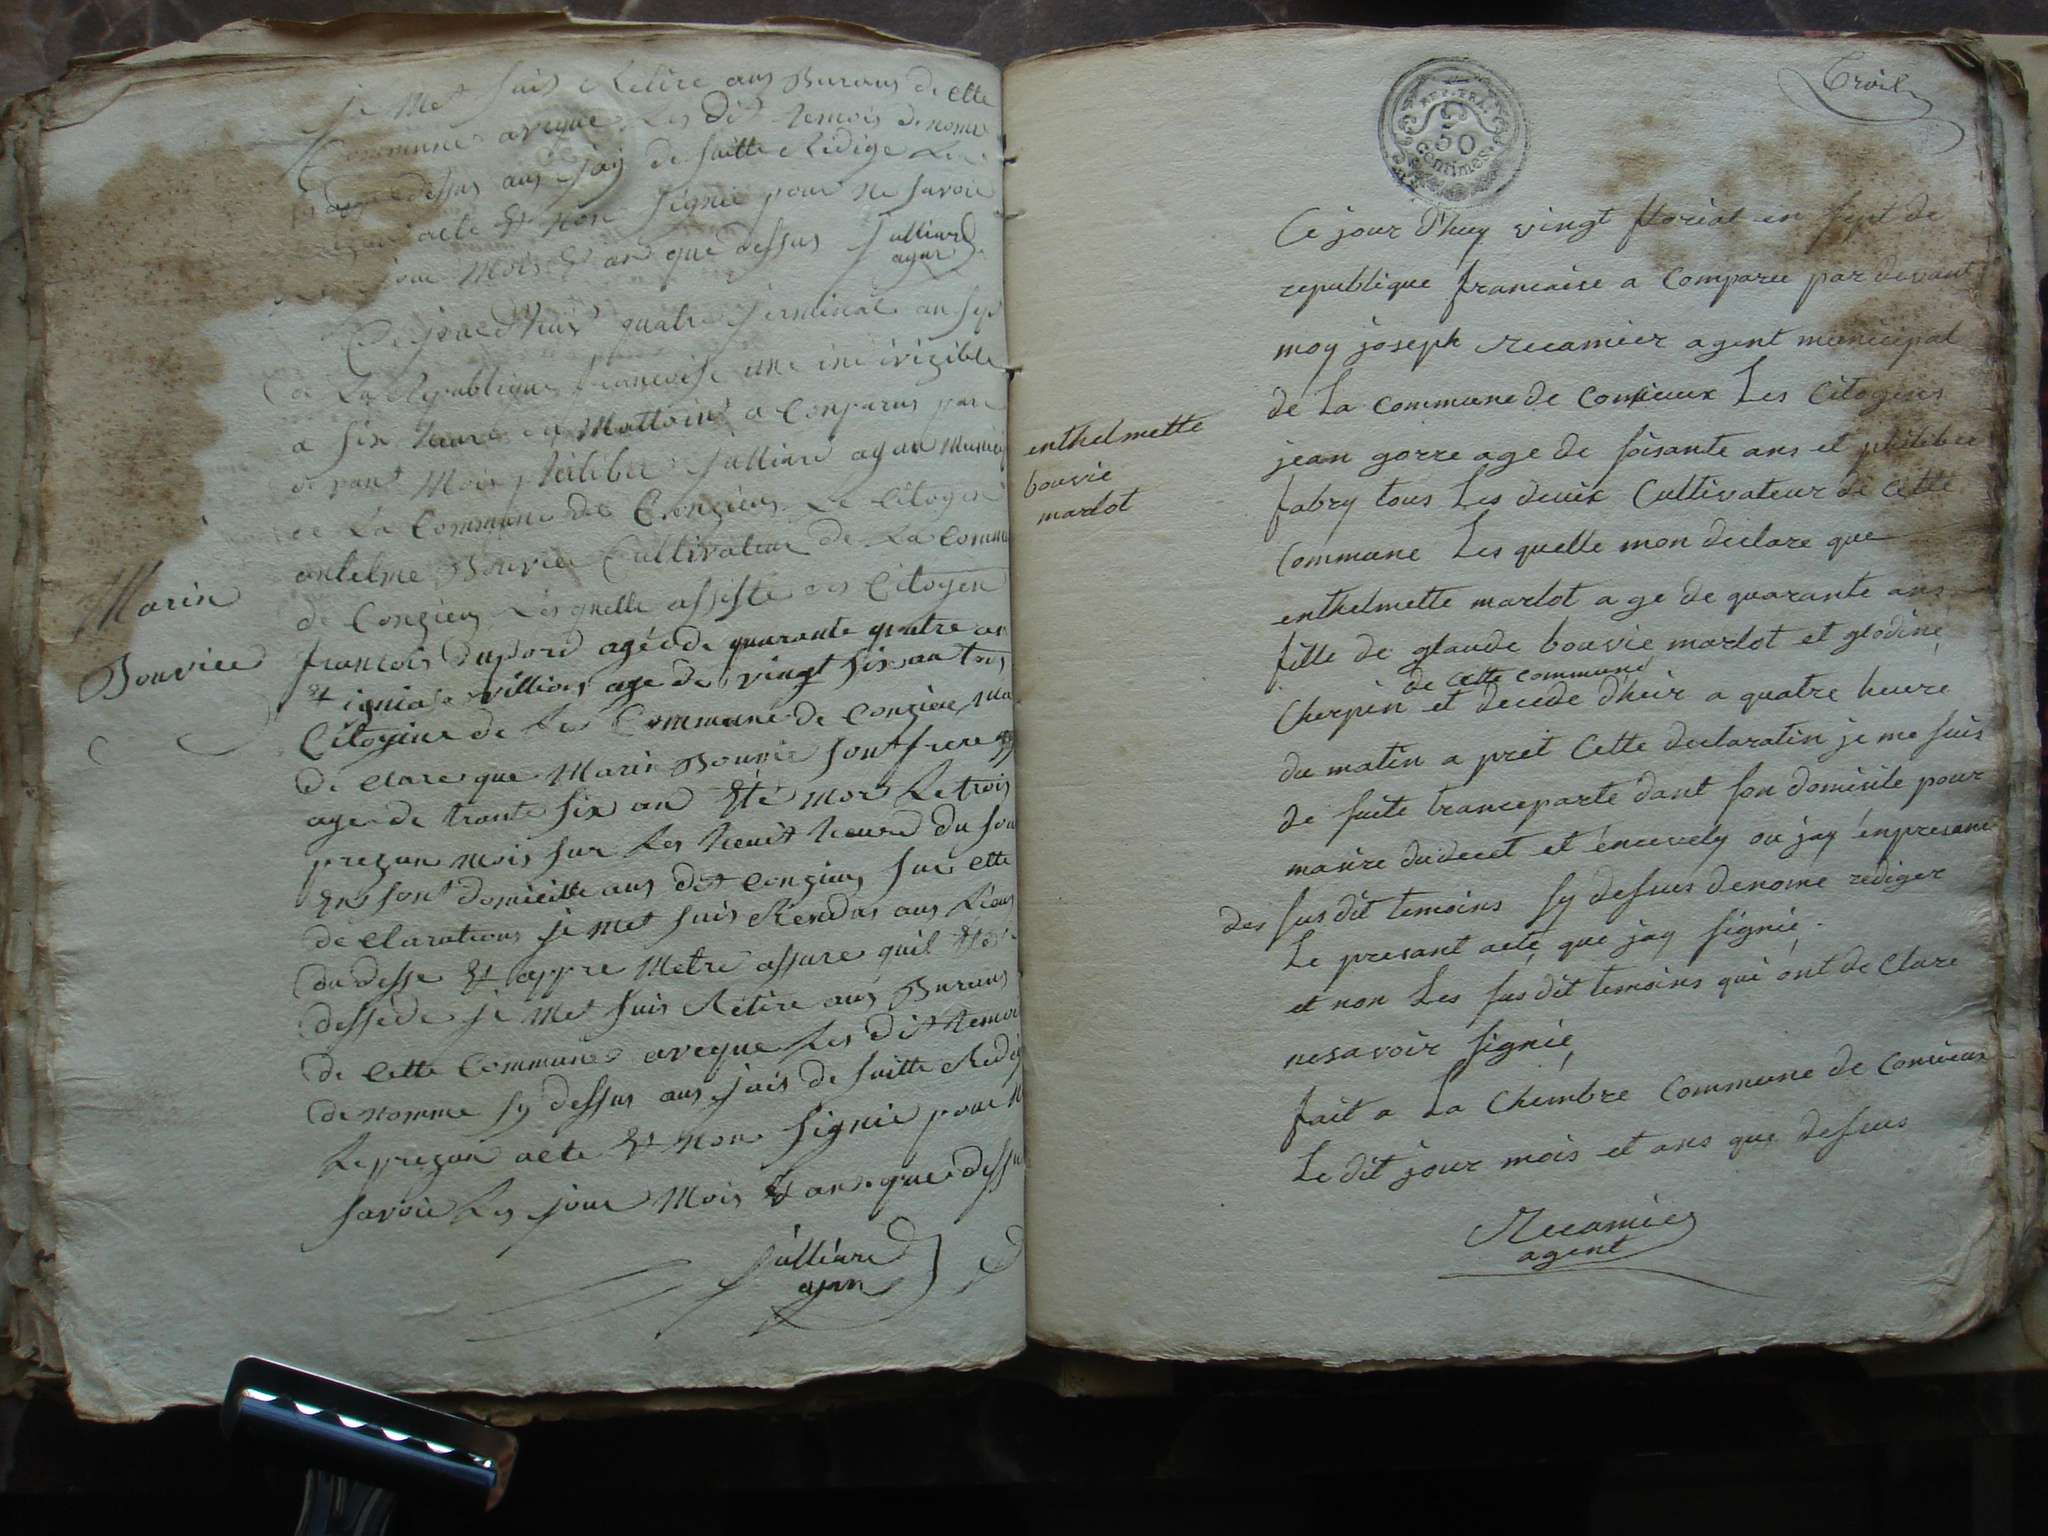 je Met suis Retire aus Buraus de Cette
Commune aveque Les Dit temois denome
dessus aus jay de suitte Redige Le
acte Et non signie pour ne savoir
jour Mois & an que dessus Julliard
agan
Ce jourdhuis quatre jerminal an sept
de La Republique francoise une indivizible
a six heure du Mattoin a Conparus par
devant Mois philiber Julliard agan Munici
de La Commune de Conzieu Le Citoyen
antelme Bouvier Cultivateur de La Commu
de Conzieu Lesquelle assisté des Citoyen
francois dupord agée de quarante quatre an
& ignia villiod age de vingt six an tous
Citoyens de La Commune de Conzieu ma
de clare que Marin Bouvie sont frere
age de trante six an Eté mor Le trois
prezan mois sur Les heuit heure du soir
En sont domicille aus dit Conzieu sur Cette
de clarations je Met suis Rendus aus Lieus
du desse Et appre Metre assure quil Eté
dessede je Met suis Retire aus Buraus
de Cette Commune aveque Les Dit temoi
denomme sy dessus aus jais de suitte Redig
Le prezan acte Et non signie pour n
savoir Les jour Mois & an que dessu
Julliard
agan
Marin
Bouvier
REP. FRA.
50
Centimes
Ce jour d'huy vingt floreal en sept de
republique francaise a Comparu par devant
moy joseph recamier agent municipal
de La commune de Conzieux Les Citoyens
jean gorre age de soisante ans et philiber
fabry tous Les deux Cultivateur de Cette
Commune Les quelle mon declare que
enthelmette marlot age de quarante ans
fille de glaude bouvie marlot et glodine
de Cette commune
Cherpin et decede d'hier a quatre heure
du matin a pret Cette declaratin je me suis
de suite tranceparte dant son domicile pour
manire dudecet et encevely ou jay enpresance
des sus dit temoins sy dessus denome rediger
Le presant acte que jay signié.
et non Les sus dit temoins qui ont de Clare
nesavoir signié
fait a La Chembre Commune de Conzieux
Le dit jour mois et ans que dessus
Recamier
agent
enthelmette
bouvie
marlot